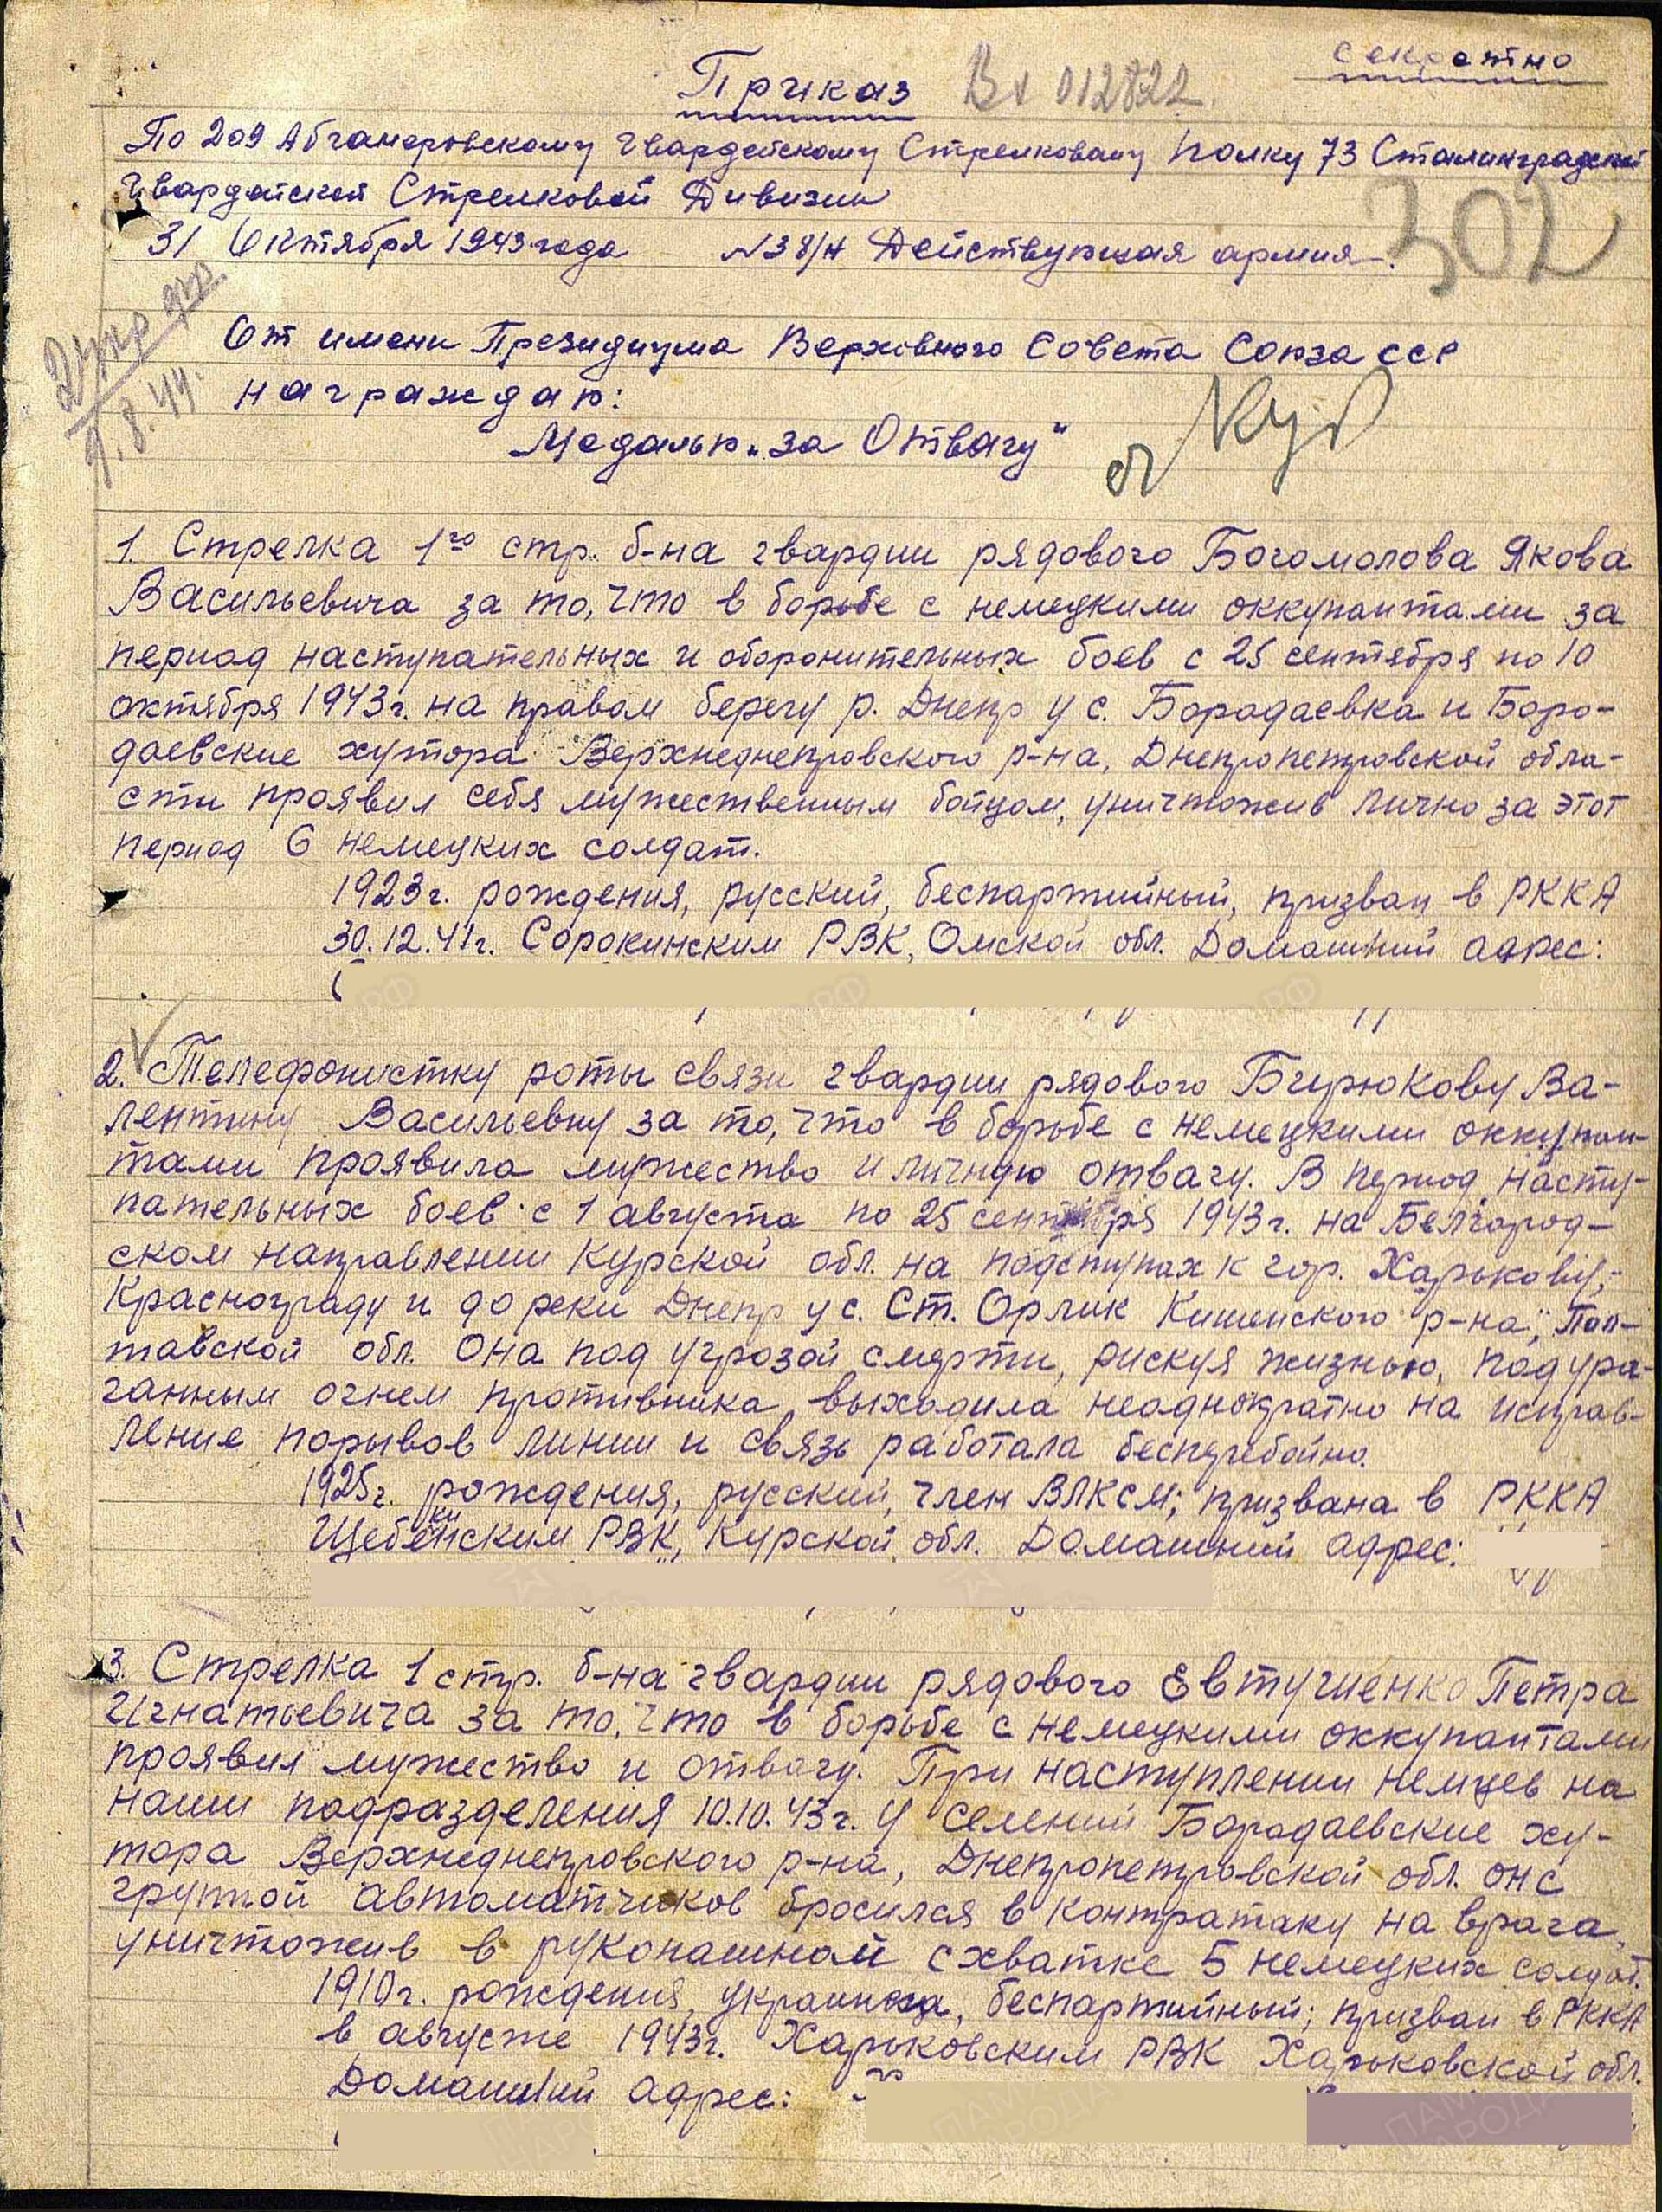 секретно
Приказ Вх 012822
По 209 Абганеровскому Гвардейскому Стрелковому полку 73 Сталинградской
Гвардейской Стрелковой Дивизии
31 Октября 1943 года №38/н Действующая армия.
302
От имени Президиума Верховного Совета Союза ССР
награждаю:
Медалью „за Отвагу"
1. Стрелка 1го стр. б-на гвардии рядового Богомолова Якова
Васильевича за то, что в борьбе с немецкими оккупантами за
период наступательных и оборонительных боев с 25 сентября по 10
октября 1943г. на правом берегу р. Днепр у с. Бородаевка и Боро-
даевские хутора Верхнеднепровского р-на, Днепропетровской обла-
сти проявил себя мужественным бойцом, уничтожив лично за этот
период 6 немецких солдат.
1923г. рождения, русский, беспартийный, призван в РККА
30.12.41г. Сорокинским РВК, Омской обл. Домашний адрес:
2. Телефонистку роты связи гвардии рядового Бирюкову Ва-
лентину Васильевну за то, что в борьбе с немецкими оккупан-
тами проявила мужество и личную отвагу. В период насту-
пательных боев с 1 августа по 25 сентября 1943г. на Белгород-
ском направлении Курской обл. на подступах к гор. Харькову,
Краснограду и до реки Днепр у с. Ст. Орлик Кишенского р-на, Пол-
тавской обл. Она под угрозой смерти, рискуя жизнью, под ура-
ганным огнем противника выходила неоднократно на исправ-
ление порывов линии и связь работала бесперебойно.
1925г. рождения, русский, член ВЛКСМ; призвана в РККА
РВК, Курской обл. Домашний адрес:
3. Стрелка 1 стр. б-на гвардии рядового Евтугиенко Петра
Игнатьевича за то, что в борьбе с немецкими оккупантами
проявил мужество и отвагу. При наступлении немцев на
наши подразделения 10.10.43г. у селений Бородаевские ху-
тора Верхнеднепровского р-на, Днепропетровской обл. он с
группой автоматчиков бросился в контратаку на врага,
уничтожив в рукопашной схватке 5 немецких солдат.
1910г. рождения, украинец, беспартийный; призван в РККА
в августе 1943г. Харьковским РВК Харьковской обл.
Домашний адрес: